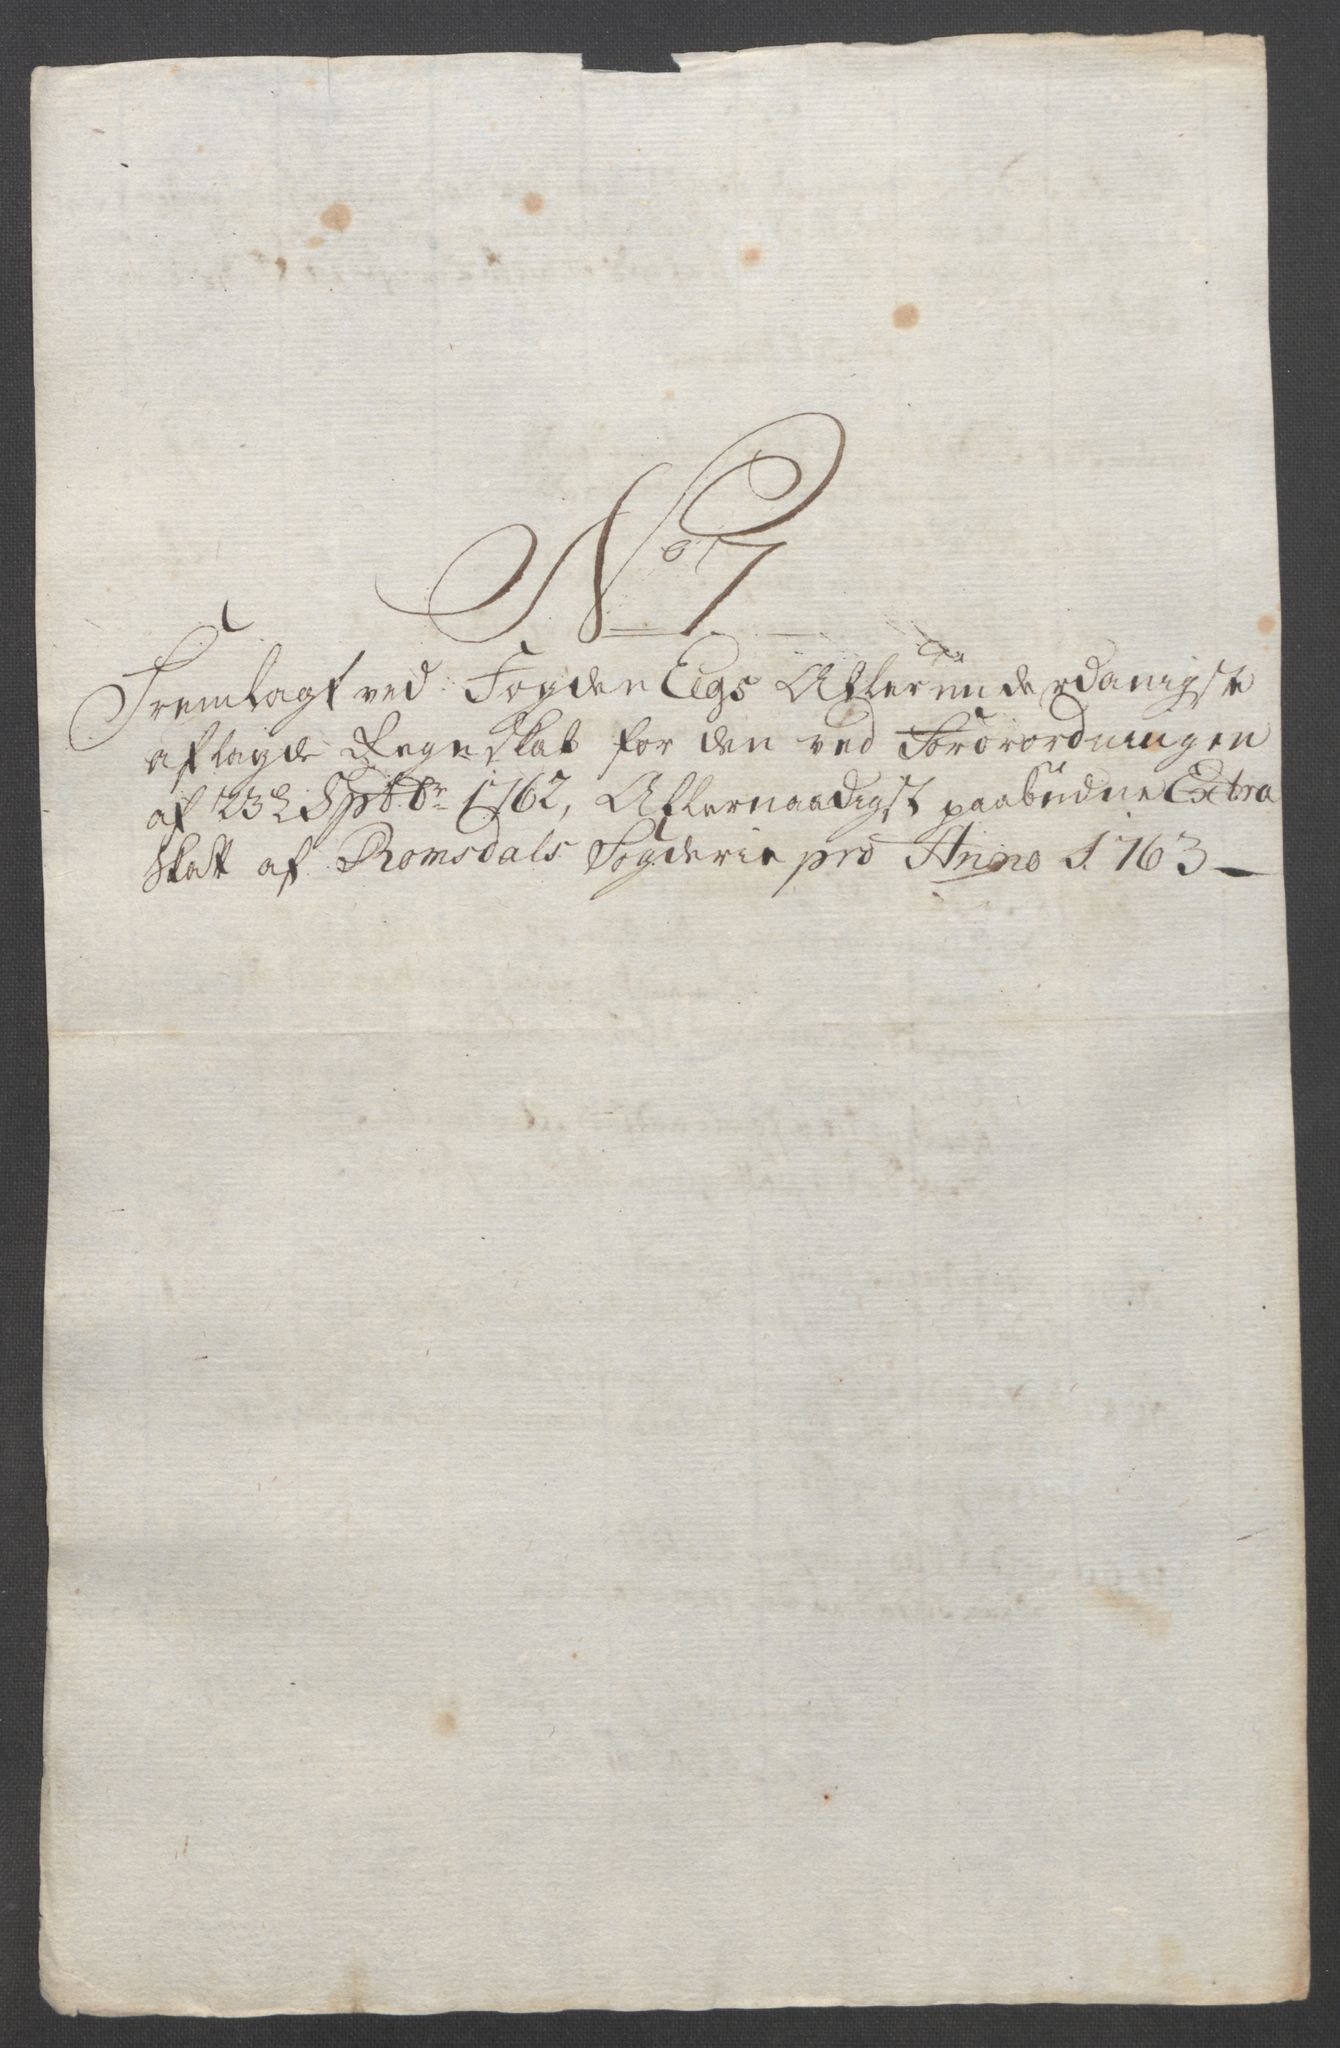 No 7
Fremlagt ved Fogden Eegs Allerunderdanigste
aflagde Regnskab for den ved Forordningen
af 23de Sptbr 1762, Allernaadigst paabudne Extra
Skatt af Romsdals Fogderie pro Anno 1763